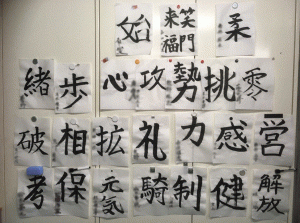 始 来笑福門 柔
緒 歩 心 攻 勢 挑 零
破 相 拡 礼 力 感 営
考 保 元気 騎 制 健 解放